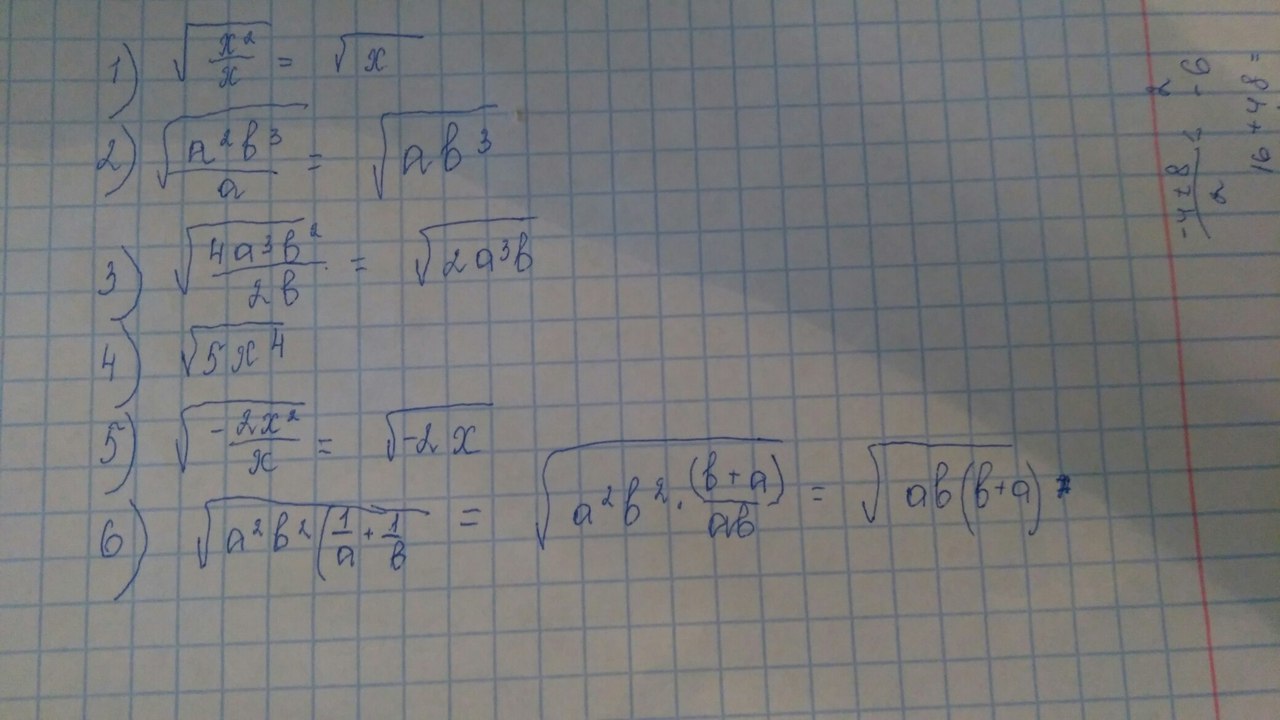 1) √(x²/x) = √x
2) √(a²b³/a) = √(ab³)
3) √(4a³b²/2b) = √(2a³b)
4) √(5x⁴)
5) √(-2x²/x) = √(-2x)
6) √(a²b²(1/a + 1/b) = √(a²b² · (b+a)/ab) = √(ab(b+a))
16 + 48 =